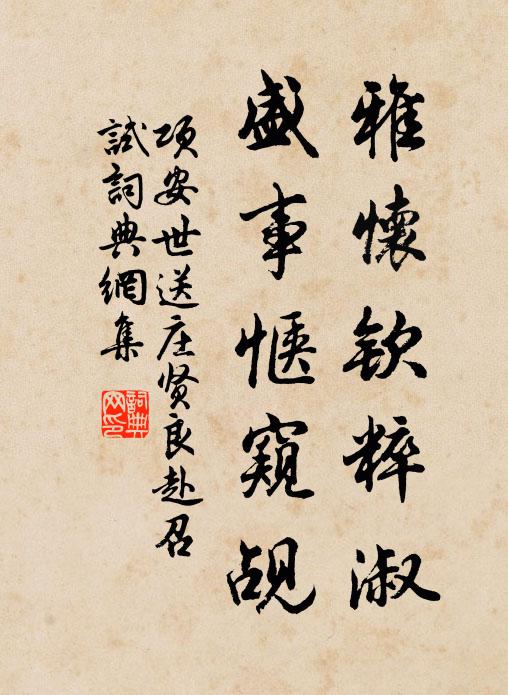 雅懷欽粹淑
盛事愜窺覘
项安世送庄贤良赴召
試詞典網集
詞典网印